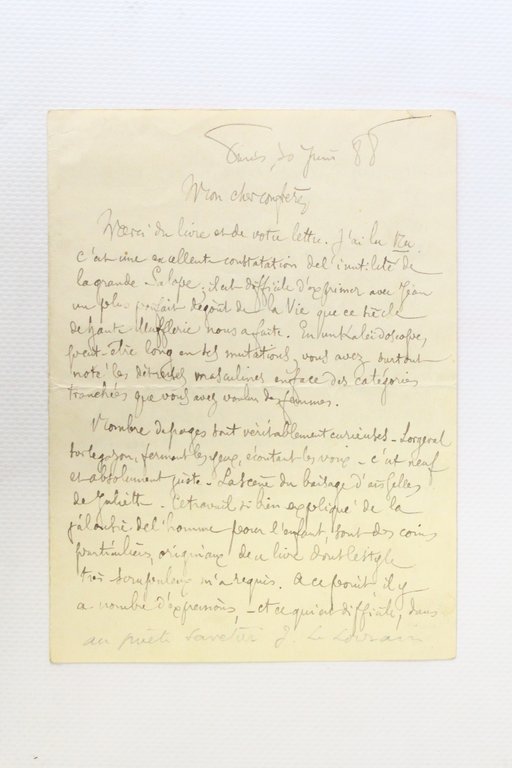 Paris, 30 Juin 88
Mon cher confrère,
Merci du livre et de votre lettre. J'ai lu
c'est une excellente constatation de l'inutilité de
la grande Salope; il est difficile d'exprimer avec
un plus parfait dégoût de la Vie que ce siècle
de haute Muflerie nous a faite. En un Kaleidoscope,
peut-être long en ses mutations, vous avez surtout
noté les détresses masculines en face des catégories
tranchées que vous avez voulu des femmes.
Nombre de pages sont véritablement curieuses -
fermant les yeux, écoutant les voix - c'est neuf
et absolument juste. La scène du baisage d'aisselles
de Juliette. Ce travail si bien expliqué de la
jalousie de l'homme pour l'enfant, sont des coins
particuliers, originaux de ce livre dont le style
très scrupuleux m'a requis. A ce point, il y
a nombre d'expressions, - et ce qui est difficile, dans
au poète savetier J. Le Lorrain